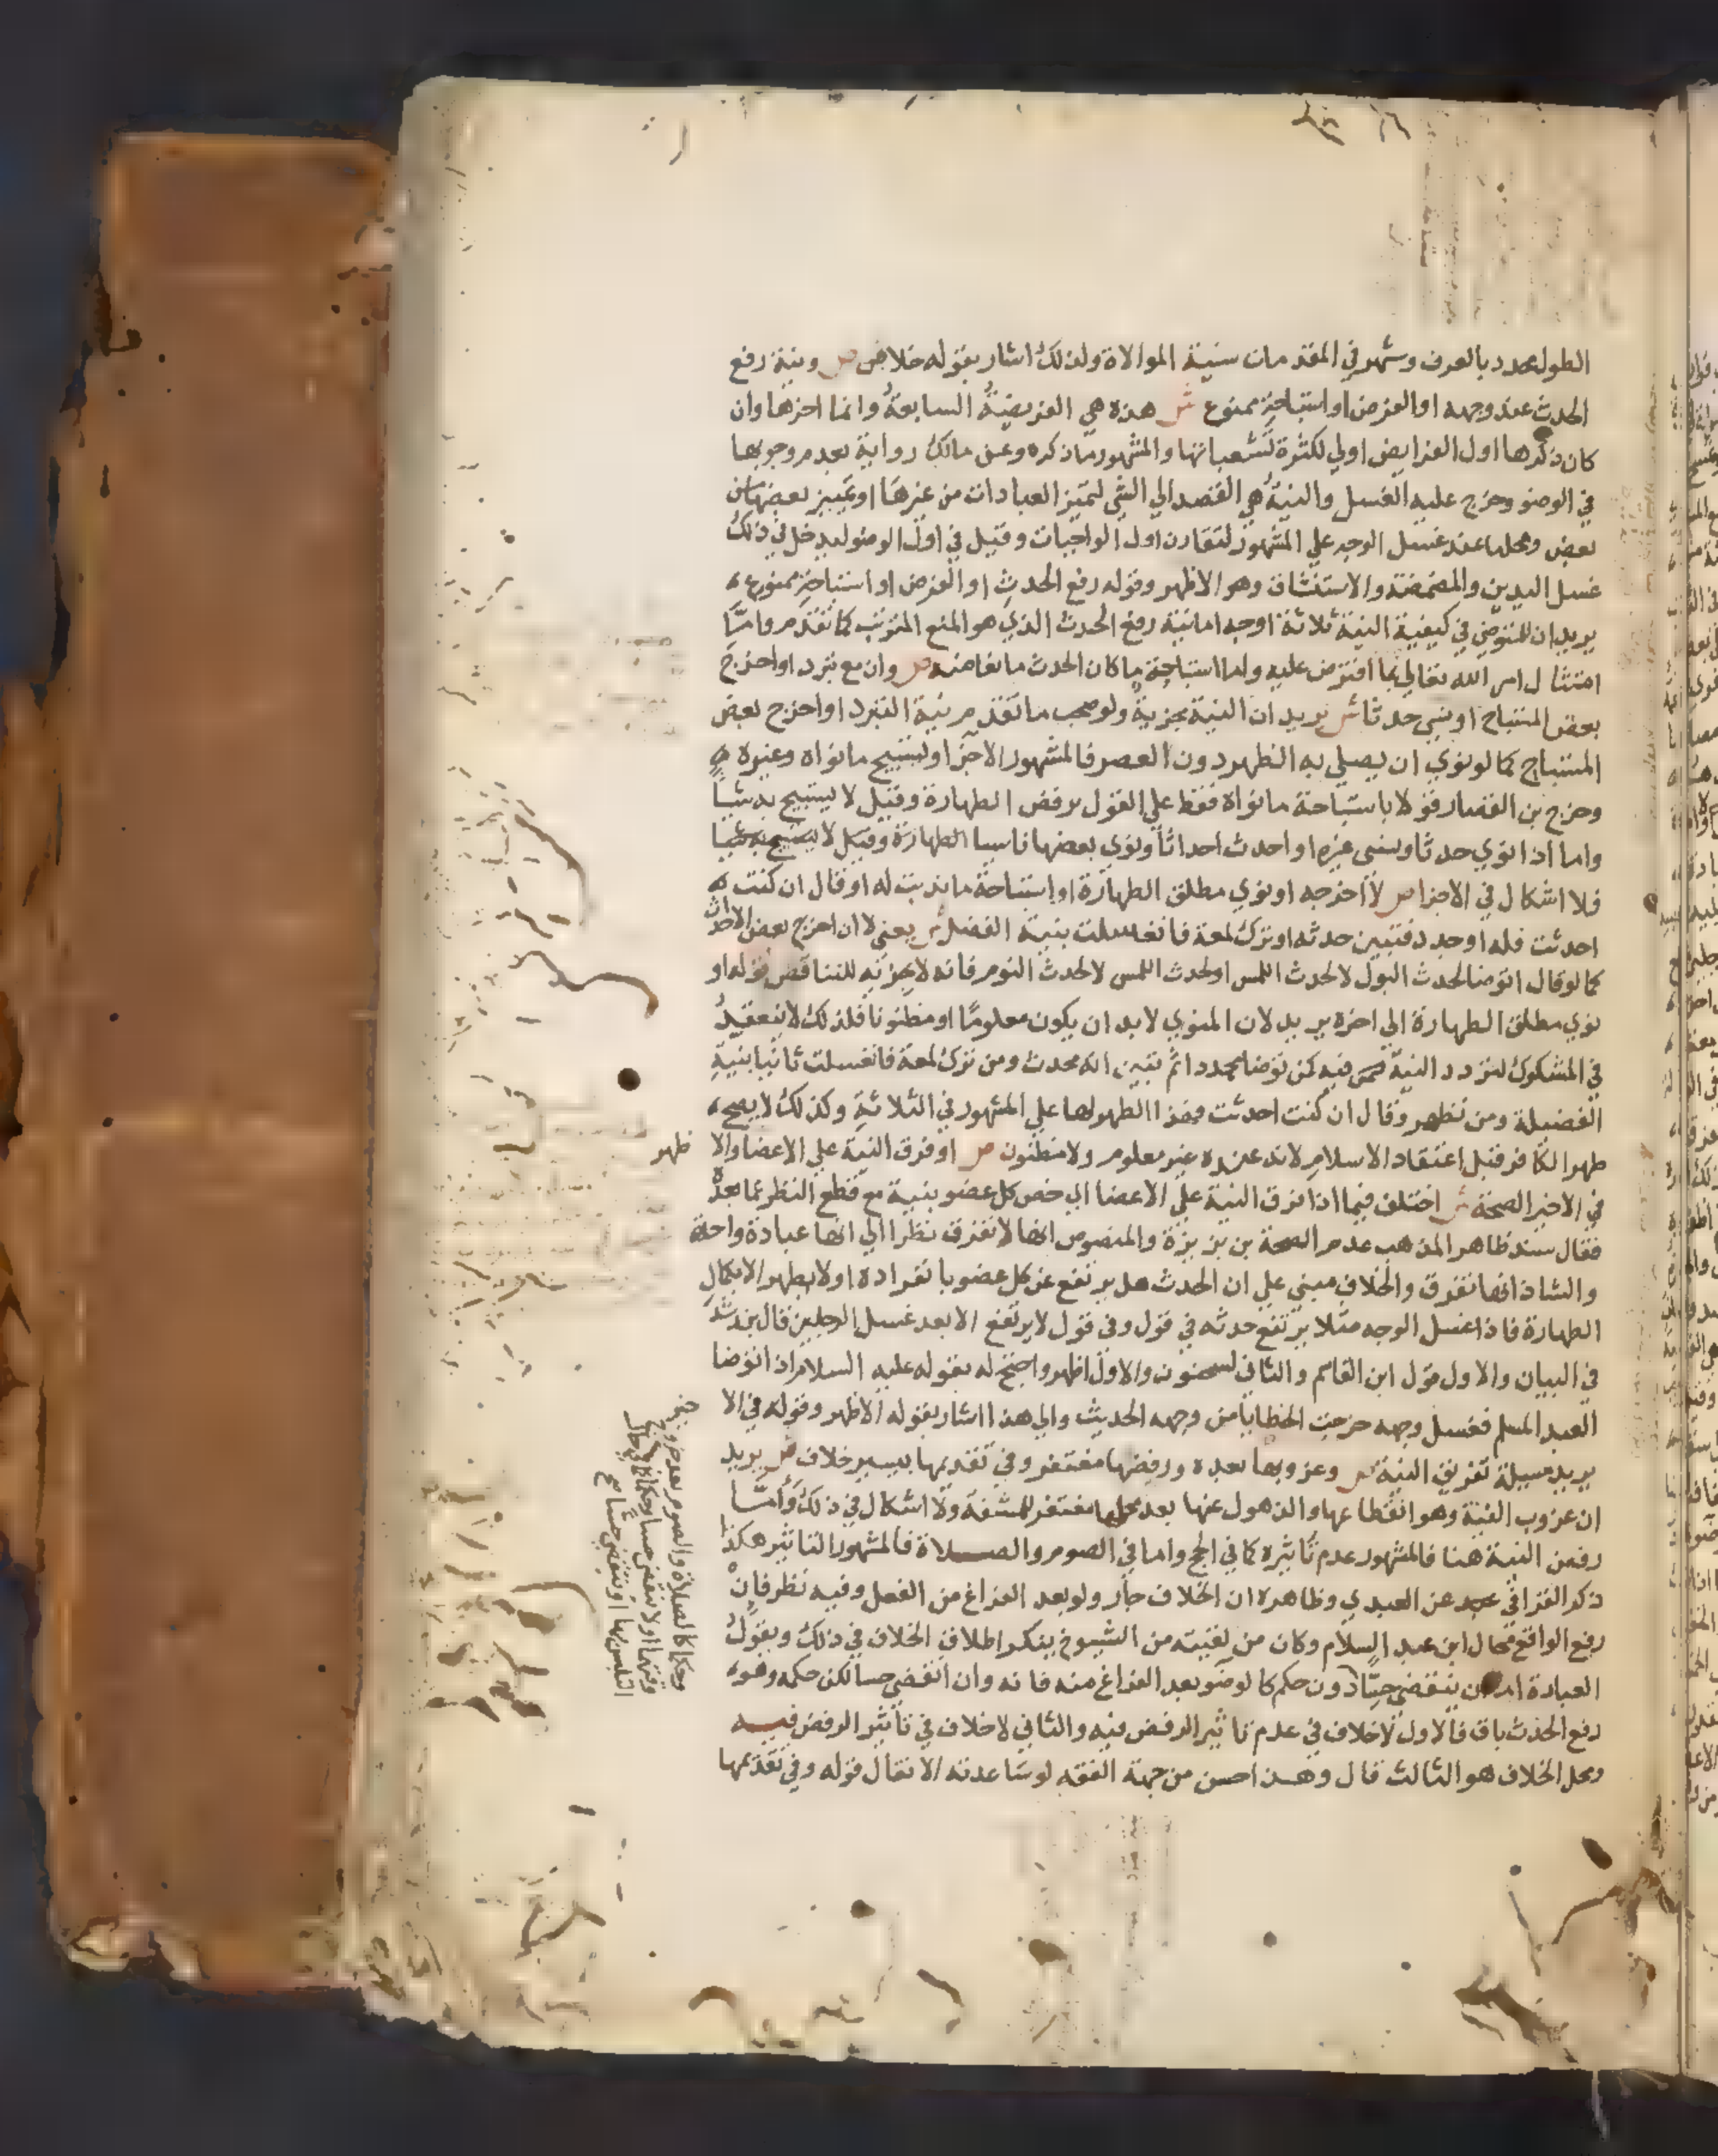 الطول محدد بالعرف وشهر في المقدمات سنية الموالاة ولذلك اشار بقوله خلاف ص ونية رفع
الحدث عند وجهه او الفرض او استباحة ممنوع ش هذه هي الفريضة السابعة وانما اخرها وان
كان ذكرها اول الفرايض اولي لكثرة تشعباتها والمشهور ما ذكره وعن مالك رواية بعدم وجوبها
في الوضو وخرج عليه الغسل والنية هي القصد الي الشي لتميز العبادات من غيرها او تمييز بعضها من
بعض ومحلها عند غسل الوجه علي المشهور لتقارن اول الواجبات وقيل في اول الوضو ليدخل في ذلك
غسل اليدين والمضمضة والاستنشاق وهو الاظهر وقوله رفع الحدث او الفرض او استباحة ممنوع
يريد ان للمتوضي في كيفية النية ثلاثة اوجه اما نية رفع الحدث الذي هو المنع المترتب كما تقدم واما
امتثال امر الله تعالي بما افترض عليه واما استباحة ما كان الحدث مانعا منه ص وان مع تبرد او اخرج
بعض المستباح او نسي حدثا ش يريد ان النية مجزية ولو صحب ما تقدم نية التبرد او اخرج بعض
المستباح كما لو نوي ان يصلي به الظهر دون العصر فالمشهور الاجزا وليستبيح ما نواه وغيره
وخرج بن القصار قولا باستباحة ما نواه فقط علي القول برفض الطهارة وقيل لا يستبيح به شيا
واما اذا نوي حدثا ونسي غيره او احدث احداثا ونوي بعضها ناسيا الطهارة وقيل لا يستبيح به شيا
فلا اشكال في الاجزا ص لا اخرجه او نوي مطلق الطهارة او استباحة ما ندبت له او قال ان كنت
احدثت فله او جدد فتبين حدثه او ترك لمعة فانغسلت بنية الفضل ش يعني لا ان اخرج بعض الاحداث
كما لو قال اتوضا لحدث البول لا لحدث اللمس او لحدث اللمس لا لحدث النوم فانه لا يجزئه للتناقض قوله او
نوي مطلق الطهارة الي اخره يريد لان المنوي لا بد ان يكون معلوما او مظنونا فلذلك لا ينعقد
في المشكوك لتردد النية فيه كمن توضا مجددا ثم تبين انه محدث ومن ترك لمعة فانغسلت ثانيا بنية
الفضيلة ومن تطهر وقال ان كنت احدثت فهذا الطهور لها علي المشهور في الثلاثة وكذلك لا يصح
طهر الكافر قبل اعتقاد الاسلام لانه عنده غير معلوم ولا مظنون ص او فرق النية علي الاعضا والا ظهر
في الاخير الصحة ش اختلف فيما اذا فرق النية علي الاعضا اي خص كل عضو بنية مع قطع النظر عما بعده
فقال سند ظاهر المذهب عدم الصحة بن بزيزة والمنصوص انها لا تفرق نظرا الي انها عبادة واحدة
والشاذ انها تفرق والخلاف مبني علي ان الحدث هل يرتفع عن كل عضو بانفراده او لا يطهر الا بكمال
الطهارة فاذا غسل الوجه مثلا يرتفع حدثه في قول وفي قول لا يرتفع الا بعد غسل الرجلين قال بن رشد
في البيان والاول قول ابن القاسم والثاني لسحنون والاول اظهر واحتج له بقوله عليه السلام اذا توضا
العبد المسلم فغسل وجهه خرجت الخطايا من وجهه الحديث والي هذا اشار بقوله الاظهر وقوله في الا خير
يريد مسيلة تفريق النية ص وعزوبها بعده ورفضها مغتفر وفي تقدمها بيسير خلاف ش يريد
ان عزوب النية وهو انقطاعها والذهول عنها بعد محلها مغتفر للمشقة ولا اشكال في ذلك واما
رفض النية هنا فالمشهور عدم تاثيره كما في الحج واما في الصوم والصلاة فالمشهور التاثير هكذا
ذكر القرافي عن العبدي وظاهره ان الخلاف جار ولو بعد الفراغ من الفعل وفيه نظر فان
رفع الواقع محال ابن عبد السلام وكان من لقيته من الشيوخ ينكر اطلاق الخلاف في ذلك ويقول
العبادة اما ان تنقضي حسا دون حكم كالوضو بعد الفراغ منه فانه وان انقضي حسا لكن حكمه وهو
رفع الحدث باق فالاول لا خلاف في عدم تاثير الرفض فيه والثاني لا خلاف في تاثير الرفض فيه
ومحل الخلاف هو الثالث قال وهذا احسن من جهة الفقه لو ساعدته الانقال قوله وفي تقدمها
وحكما كالصلاة والصوم بعد خروج
وقتهما او لا تنقضي حسا وحكما كما في حال
التلبس بها او تنقضي حسا